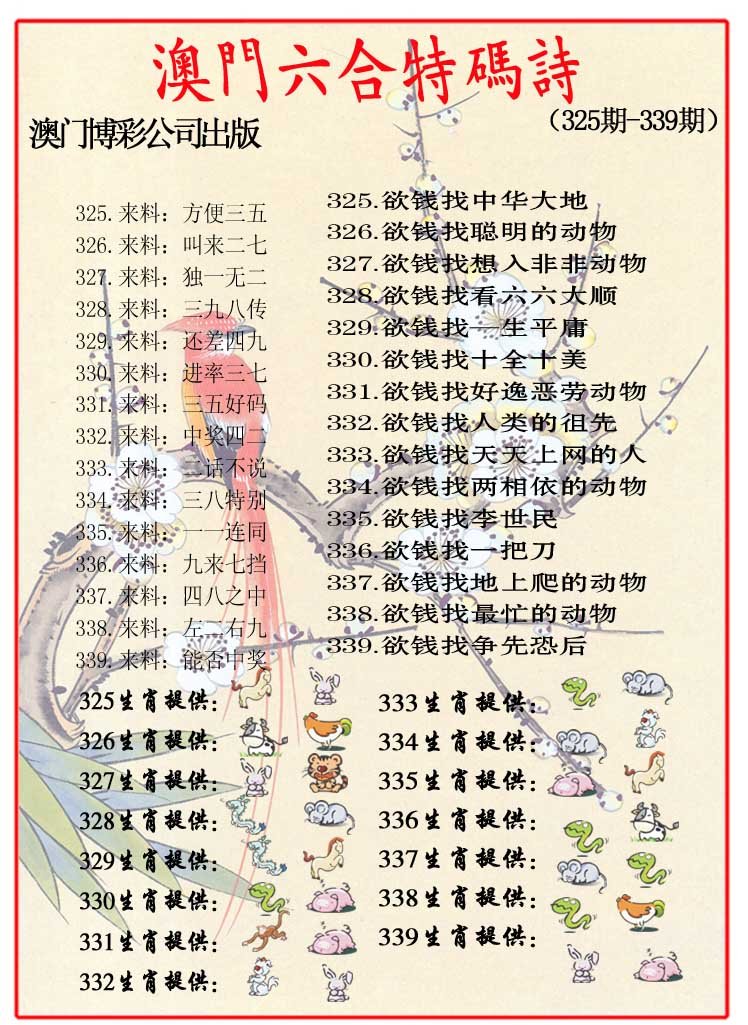 澳門六合特碼詩
澳门博彩公司出版
（325期-339期）
325.来料：方便三五
326.来料：叫来二七
327.来料：独一无二
328.来料：三九八传
329.来料：还差四九
330.来料：进率三七
331.来料：三五好码
332.来料：中奖四二
333.来料：二话不说
334.来料：三八特别
335.来料：一一连同
336.来料：九来七挡
337.来料：四八之中
338.来料：左一右九
339.来料：能否中奖
325.欲钱找中华大地
326.欲钱找聪明的动物
327.欲钱找想入非非动物
328.欲钱找看六六大顺
329.欲钱找一生平庸
330.欲钱找十全十美
331.欲钱找好逸恶劳动物
332.欲钱找人类的祖先
333.欲钱找天天上网的人
334.欲钱找两相依的动物
335.欲钱找李世民
336.欲钱找一把刀
337.欲钱找地上爬的动物
338.欲钱找最忙的动物
339.欲钱找争先恐后
325生肖提供：
326生肖提供：
327生肖提供：
328生肖提供：
329生肖提供：
330生肖提供：
331生肖提供：
332生肖提供：
333生肖提供：
334生肖提供：
335生肖提供：
336生肖提供：
337生肖提供：
338生肖提供：
339生肖提供：